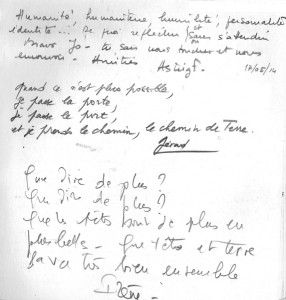 Humanité, humanitaire, humilité, personnalité
identité... De quoi réfléchir et sans s'attendrir
Bravo Jo - tu sais nous toucher et nous
émouvoir. Amitiés 17/05/14
Quand ce n'est plus possible,
je passe la porte,
je passe le port,
et je prends le chemin, le chemin de Terre.
Gérard
Que dire de plus ?
Que dire de plus ?
Que le têts sont de plus en
plus belles - Que têts et terre
ça va très bien ensemble